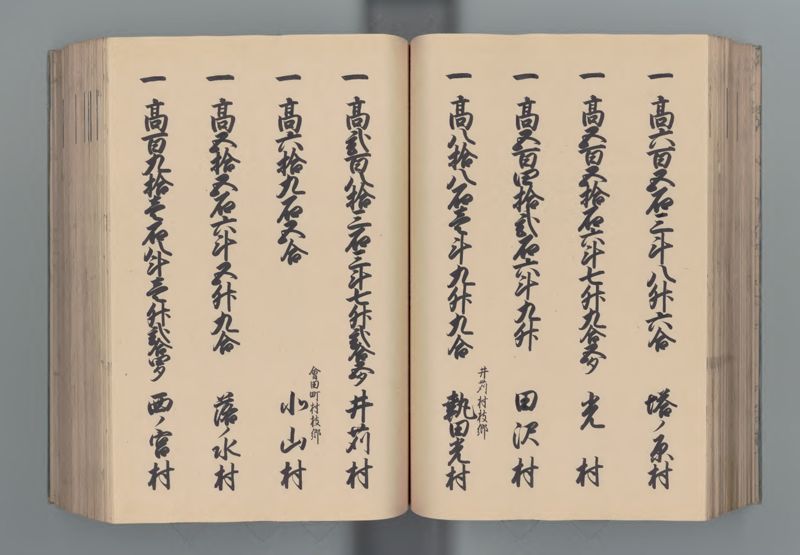 一 高六百五石三斗八升六合 塔ノ原村
一 高五百五拾石六斗七升九合五夕 光村
一 高五百四拾弐石六斗九升 田沢村
井苅村枝郷
一 高八拾八石壱斗九升九合 熱田光村
一 高弐百八拾三石三斗七升弐合五夕 井苅村
會田町村枝郷
一 高六拾九石五合 小山村
一 高五拾五石六斗五升九合 落ノ水村
一 高百九拾壱石八斗壱升弐合四夕 西ノ宮村